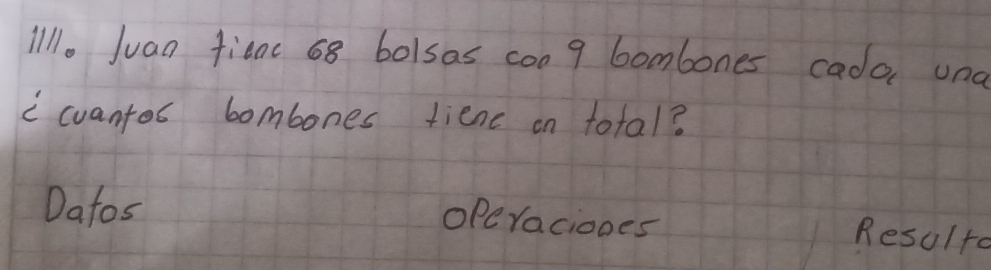 1111. Juan tiene 68 bolsas con 9 bombones cada una
¿cuantos bombones tiene en total?
Datos operaciones Resulto